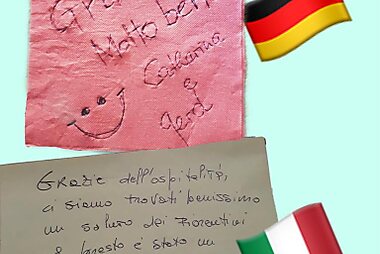 Catharina
&
Gerd
Grazie dell'ospitalità,
ci siamo trovati benissimo
un saluto dei Fiorentini
questo è stato un